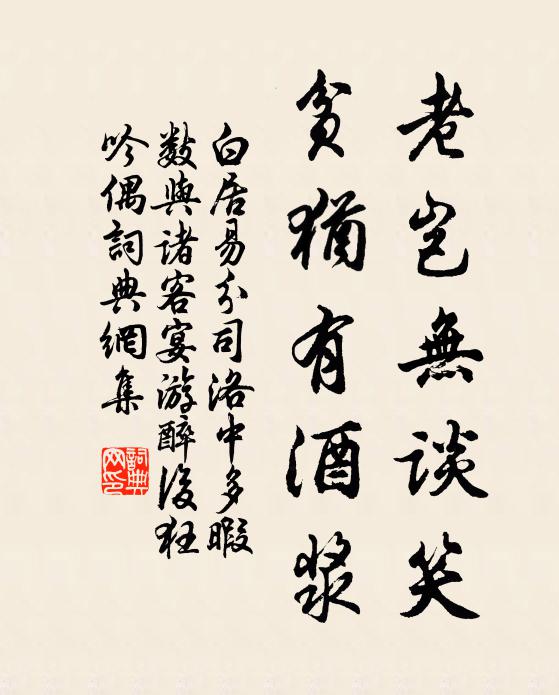 老岂無谈笑
贫猶有酒浆
白居易分司洛中多暇
数與诸客宴游醉後狂
吟偶詞典網集
詞典
网印